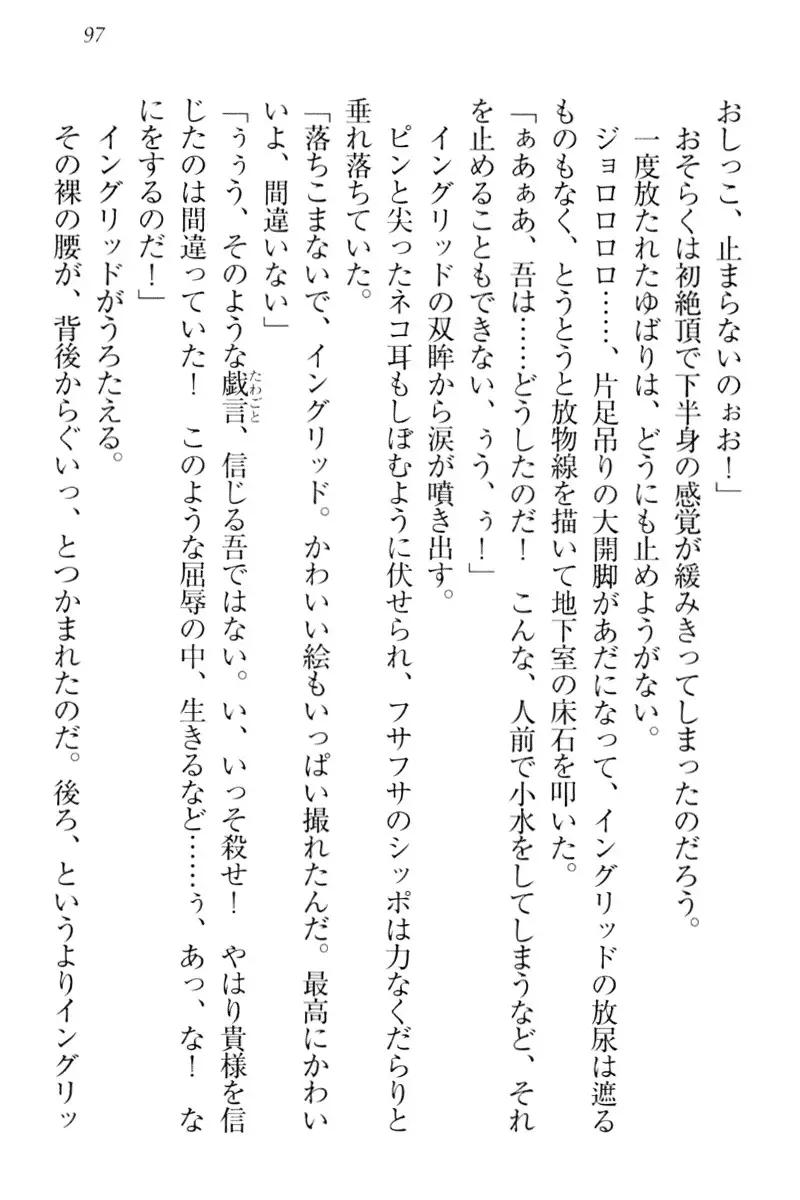 97
おしっこ、止まらないのぉお！」
おそらくは初絶頂で下半身の感覚が緩みきってしまったのだろう。
一度放たれたゆばりは、どうにも止めようがない。
ジョロロロロ……、片足吊りの大開脚があだになって、イングリッドの放尿は遮る
ものもなく、とうとうと放物線を描いて地下室の床石を叩いた。
「ぁあぁあ、吾は……どうしたのだ！　こんな、人前で小水をしてしまうなど、それ
を止めることもできない、ぅう、ぅ！」
イングリッドの双眸から涙が噴き出す。
ピンと尖ったネコ耳もしぼむように伏せられ、フサフサのシッポは力なくだらりと
垂れ落ちていた。
「落ちこまないで、イングリッド。かわいい絵もいっぱい撮れたんだ。最高にかわい
いよ、間違いない」
「ぅぅう、そのような戯言、信じる吾ではない。い、いっそ殺せ！　やはり貴様を信
たわごと
じたのは間違っていた！　このような屈辱の中、生きるなど……ぅ、あっ、な！　な
にをするのだ！」
イングリッドがうろたえる。
その裸の腰が、背後からぐいっ、とつかまれたのだ。後ろ、というよりイングリッ